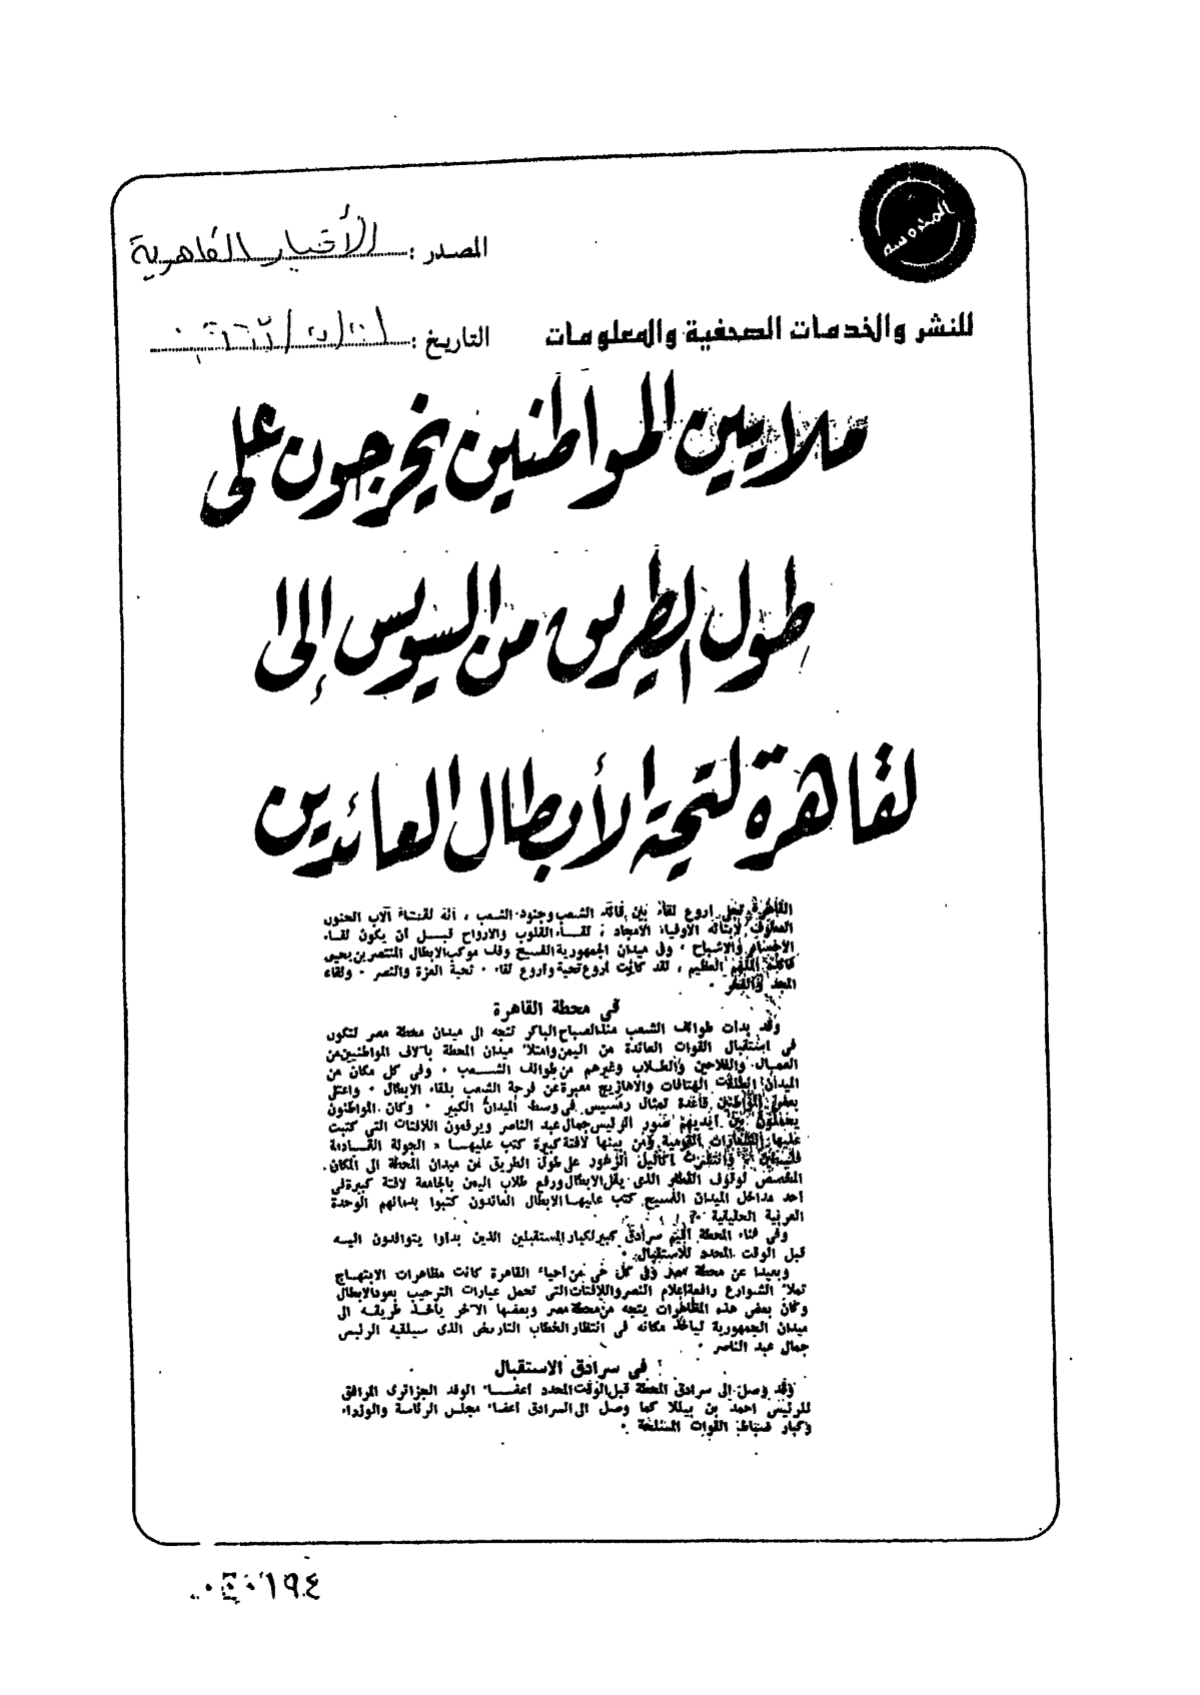 المحروسة
المصدر : الأخبار القاهرية
للنشر والخدمات الصحفية والمعلومات
التاريخ :
ملايين المواطنين يخرجون على
طول الطريق من السويس إلى ا
لقاهرة لتحية الأبطال العائدين
القاهرة اروع لقاء بين قائد الشعب وجنود الشعب ، انه لقاء الاب الحنون
العطوف لابنائه الاوفياء الامجاد ، لقاء القلوب والارواح قبل ان يكون لقاء
الاجسام والاشباح ، وفى ميدان الجمهورية الفسيح وقف موكب الابطال المنتصرين يحيى
قائده الملهم العظيم ، لقد كانت اروع تحية واروع لقاء ، تحية العزة والنصر ، ولقاء
المجد والفخر .
فى محطة القاهرة
وقد بدات طوائف الشعب منذ الصباح الباكر تتجه الى ميدان محطة مصر لتكون
فى استقبال القوات العائدة من اليمن وامتلا ميدان المحطة بآلاف المواطنين من
العمال والفلاحين والطلاب وغيرهم من طوائف الشعب ، وفى كل مكان من
الميدان انطلقت الهتافات والاهازيج معبرة عن فرحة الشعب بلقاء الابطال ، واعتلى
بعض المواطنين قاعدة تمثال رمسيس فى وسط الميدان الكبير ، وكان المواطنون
يحملون بين ايديهم صور الرئيس جمال عبد الناصر ويرفعون اللافتات التى كتبت
عليها الشعارات القومية ومن بينها لافتة كبيرة كتب عليها « الجولة القادمة
فلسطين » وانتشرت اكاليل الزهور على طول الطريق من ميدان المحطة الى المكان
المخصص لوقوف القطار الذى يقل الابطال ورفع طلاب اليمن بالجامعة لافتة كبيرة فى
احد مداخل الميدان الفسيح كتب عليها الابطال العائدون كتبوا بدمائهم الوحدة
العربية الحقيقية .
وفى فناء المحطة اقيم سرادق كبير لكبار المستقبلين الذين بداوا يتوافدون اليه
قبل الوقت المحدد للاستقبال .
وبعيدا عن محطة مصر وفى كل حى من احياء القاهرة كانت مظاهرات الابتهاج
تملا الشوارع رافعة اعلام النصر واللافتات التى تحمل عبارات الترحيب بعودالابطال
وكان بعض هذه المظاهرات يتجه من محطة مصر وبعضها الآخر ياخذ طريقه الى
ميدان الجمهورية لياخذ مكانه فى انتظار الخطاب التاريخى الذى سيلقيه الرئيس
جمال عبد الناصر .
فى سرادق الاستقبال
وقد وصل الى سرادق المحطة قبل الوقت المحدد اعضاء الوفد الجزائرى المرافق
للرئيس احمد بن بيللا كما وصل الى السرادق اعضاء مجلس الرئاسة والوزراء
وكبار ضباط القوات المسلحة .